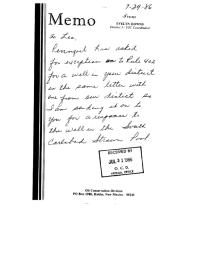 7-29-86
Memo
From
EVELYN DOWNS
To Les.
Pennzoil has asked
for exception to Rule 402
for a well in your district
in the same letter with
one from our district so
I am sending it on to
you for a response to
the well in the South
Carlsbad Strawn Pool
RECEIVED BY
JUL 31 1986
O. C. D.
ARTESIA, OFFICE
Oil Conservation Division
PO Box 1980, Hobbs, New Mexico 88241